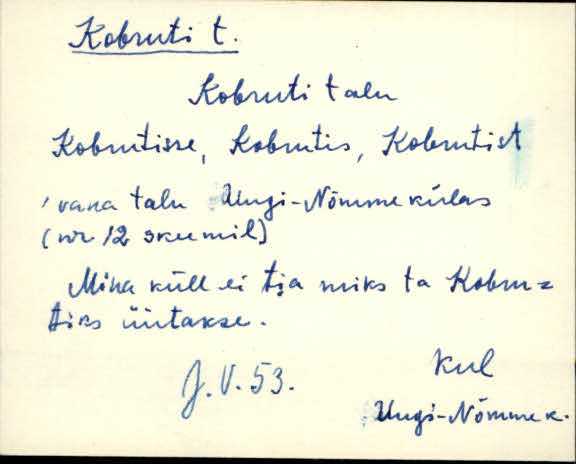 Kobruti t.
Kobruti talu
Kobrutisse, Kobrutis, Kobrutist
'vana talu Uugi-Nõmme külas
(nr 12 skeemil)
Mina küll ei tja miks ta Kobru=
tiks üütakse.
J.V.53. Kul
Uugi-Nõmme k.